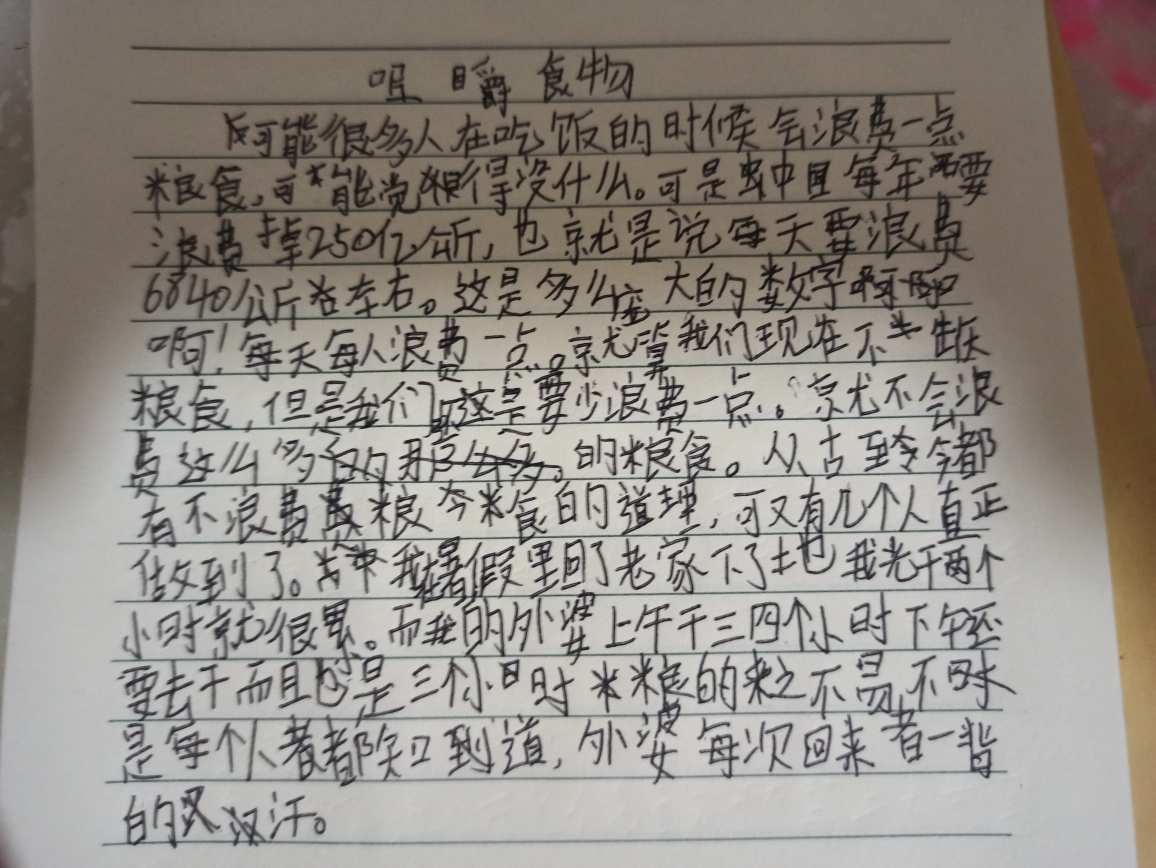 咀嚼食物
可能很多人在吃饭的时候会浪费一点
粮食,可能觉得没什么。可是中国每年要
浪费掉250亿公斤,也就是说每天要浪费
6840公斤左右。这是多么庞大的数字啊
啊!每天每人浪费一点。就算我们现在不缺
粮食,但是我们这是要少浪费一点。就不会浪
费这么多的的粮食。从古至今都
有不浪费粮食的道理,可又有几个人真正
做到了。我暑假里回了老家下了土也我光干两个
小时就很累。而我的外婆上午干三四个小时下午还
要去干而且也是三个小时粮的来之不易不
是每个人都知到道,外婆每次回来者一背
的汉汗。